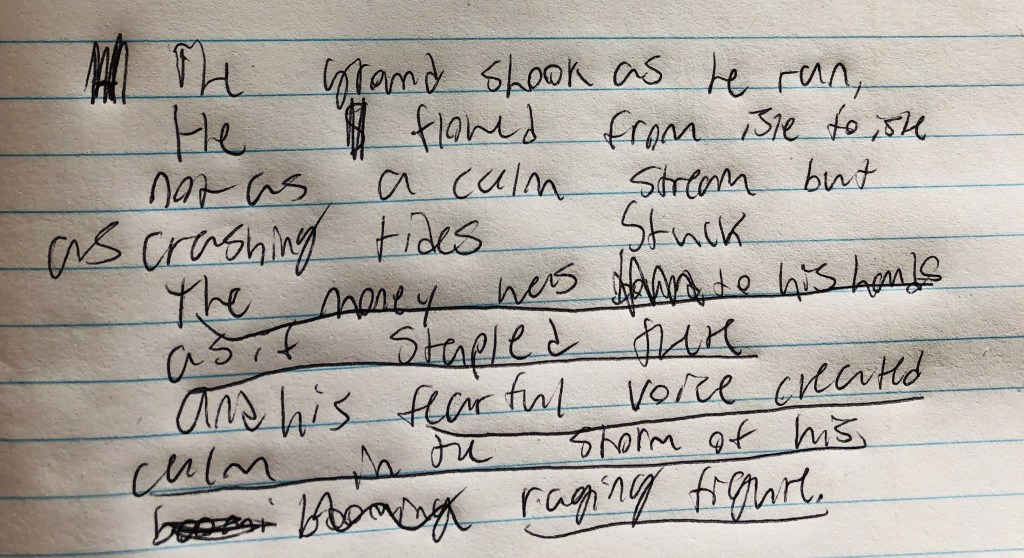 The ground shook as he ran,
He flowed from isle to isle
not as a calm stream but
as crashing tides
Stuck
the money was to his hands
as if stapled there
And his fearful voice created
calm in the storm of his
booming raging figure.